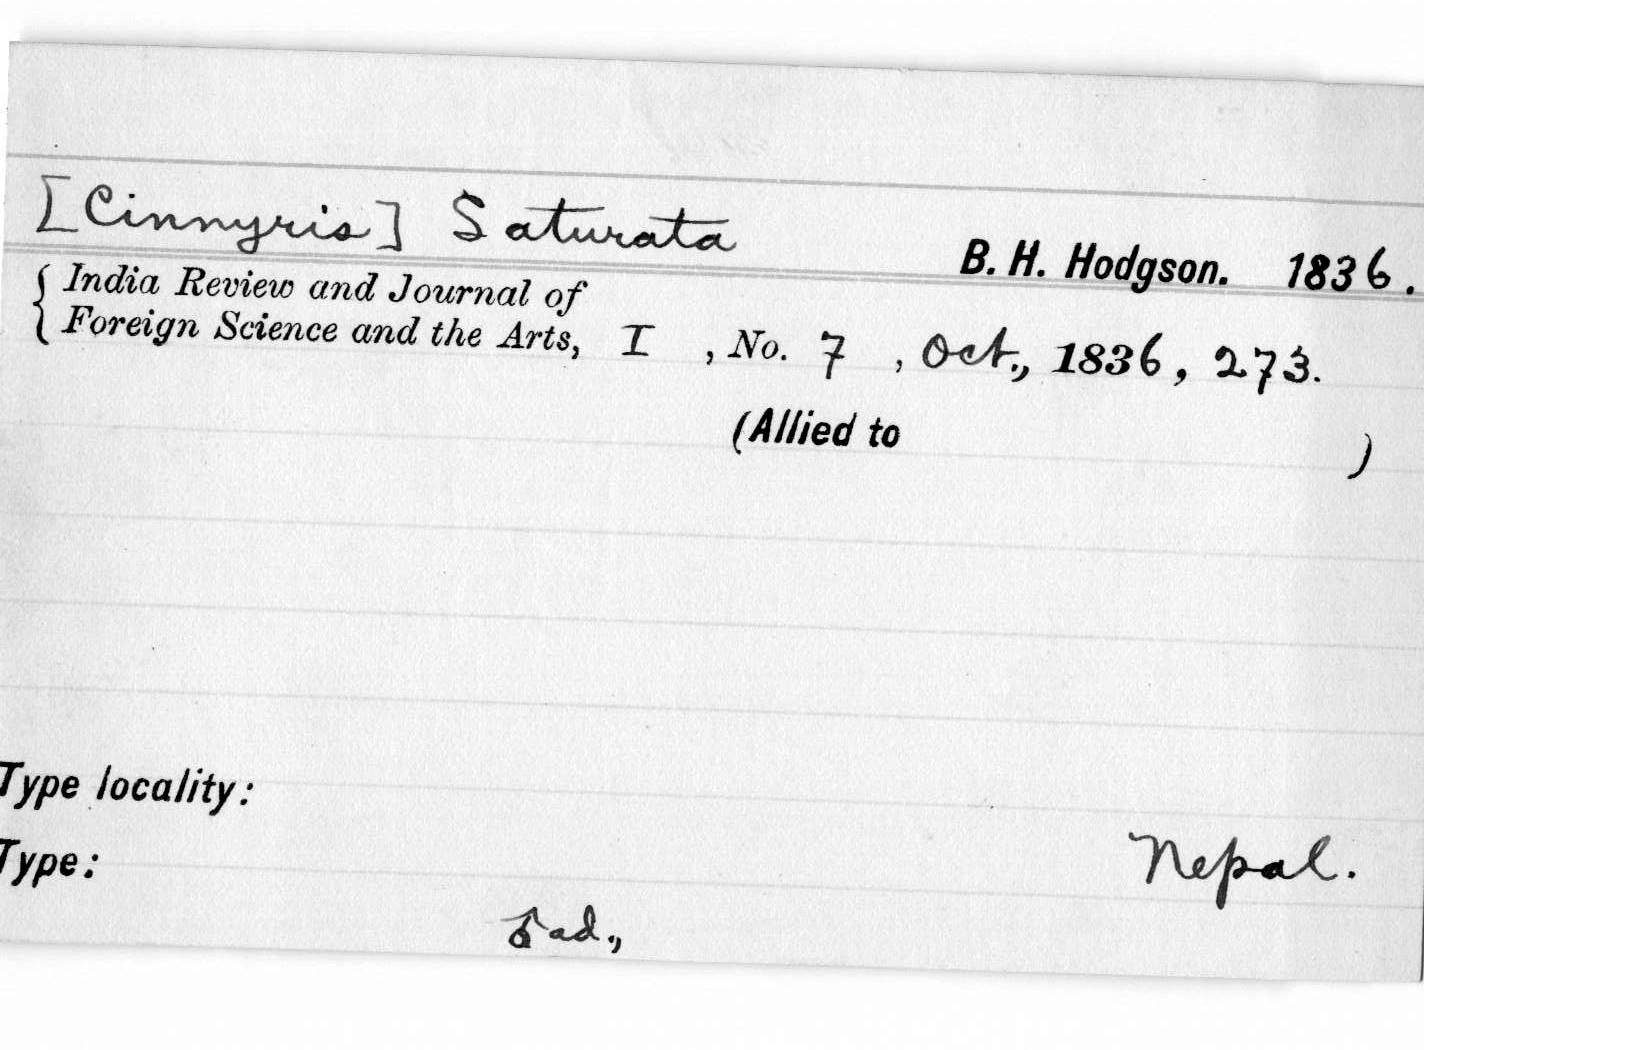 [Cinnyris] Saturata
B. H. Hodgson. 1836.
India Review and Journal of
Foreign Science and the Arts, I , No. 7 , Oct., 1836, 273.
(Allied to )
Type locality:
Nepal.
Type:
♂ ad.,